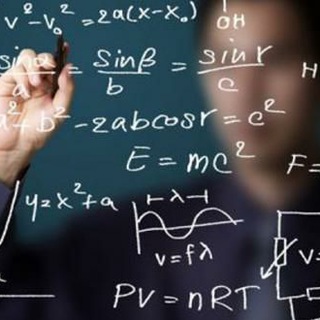 v² - v₀² = 2a(x - x₀)
OH
sinα / a = sinβ / b = sin r / c
H
a² + b² - 2abcosr = c²
E = mc²
F =
y = x² + a
⊢ λ ⊣
v = fλ
V =
PV = nRT